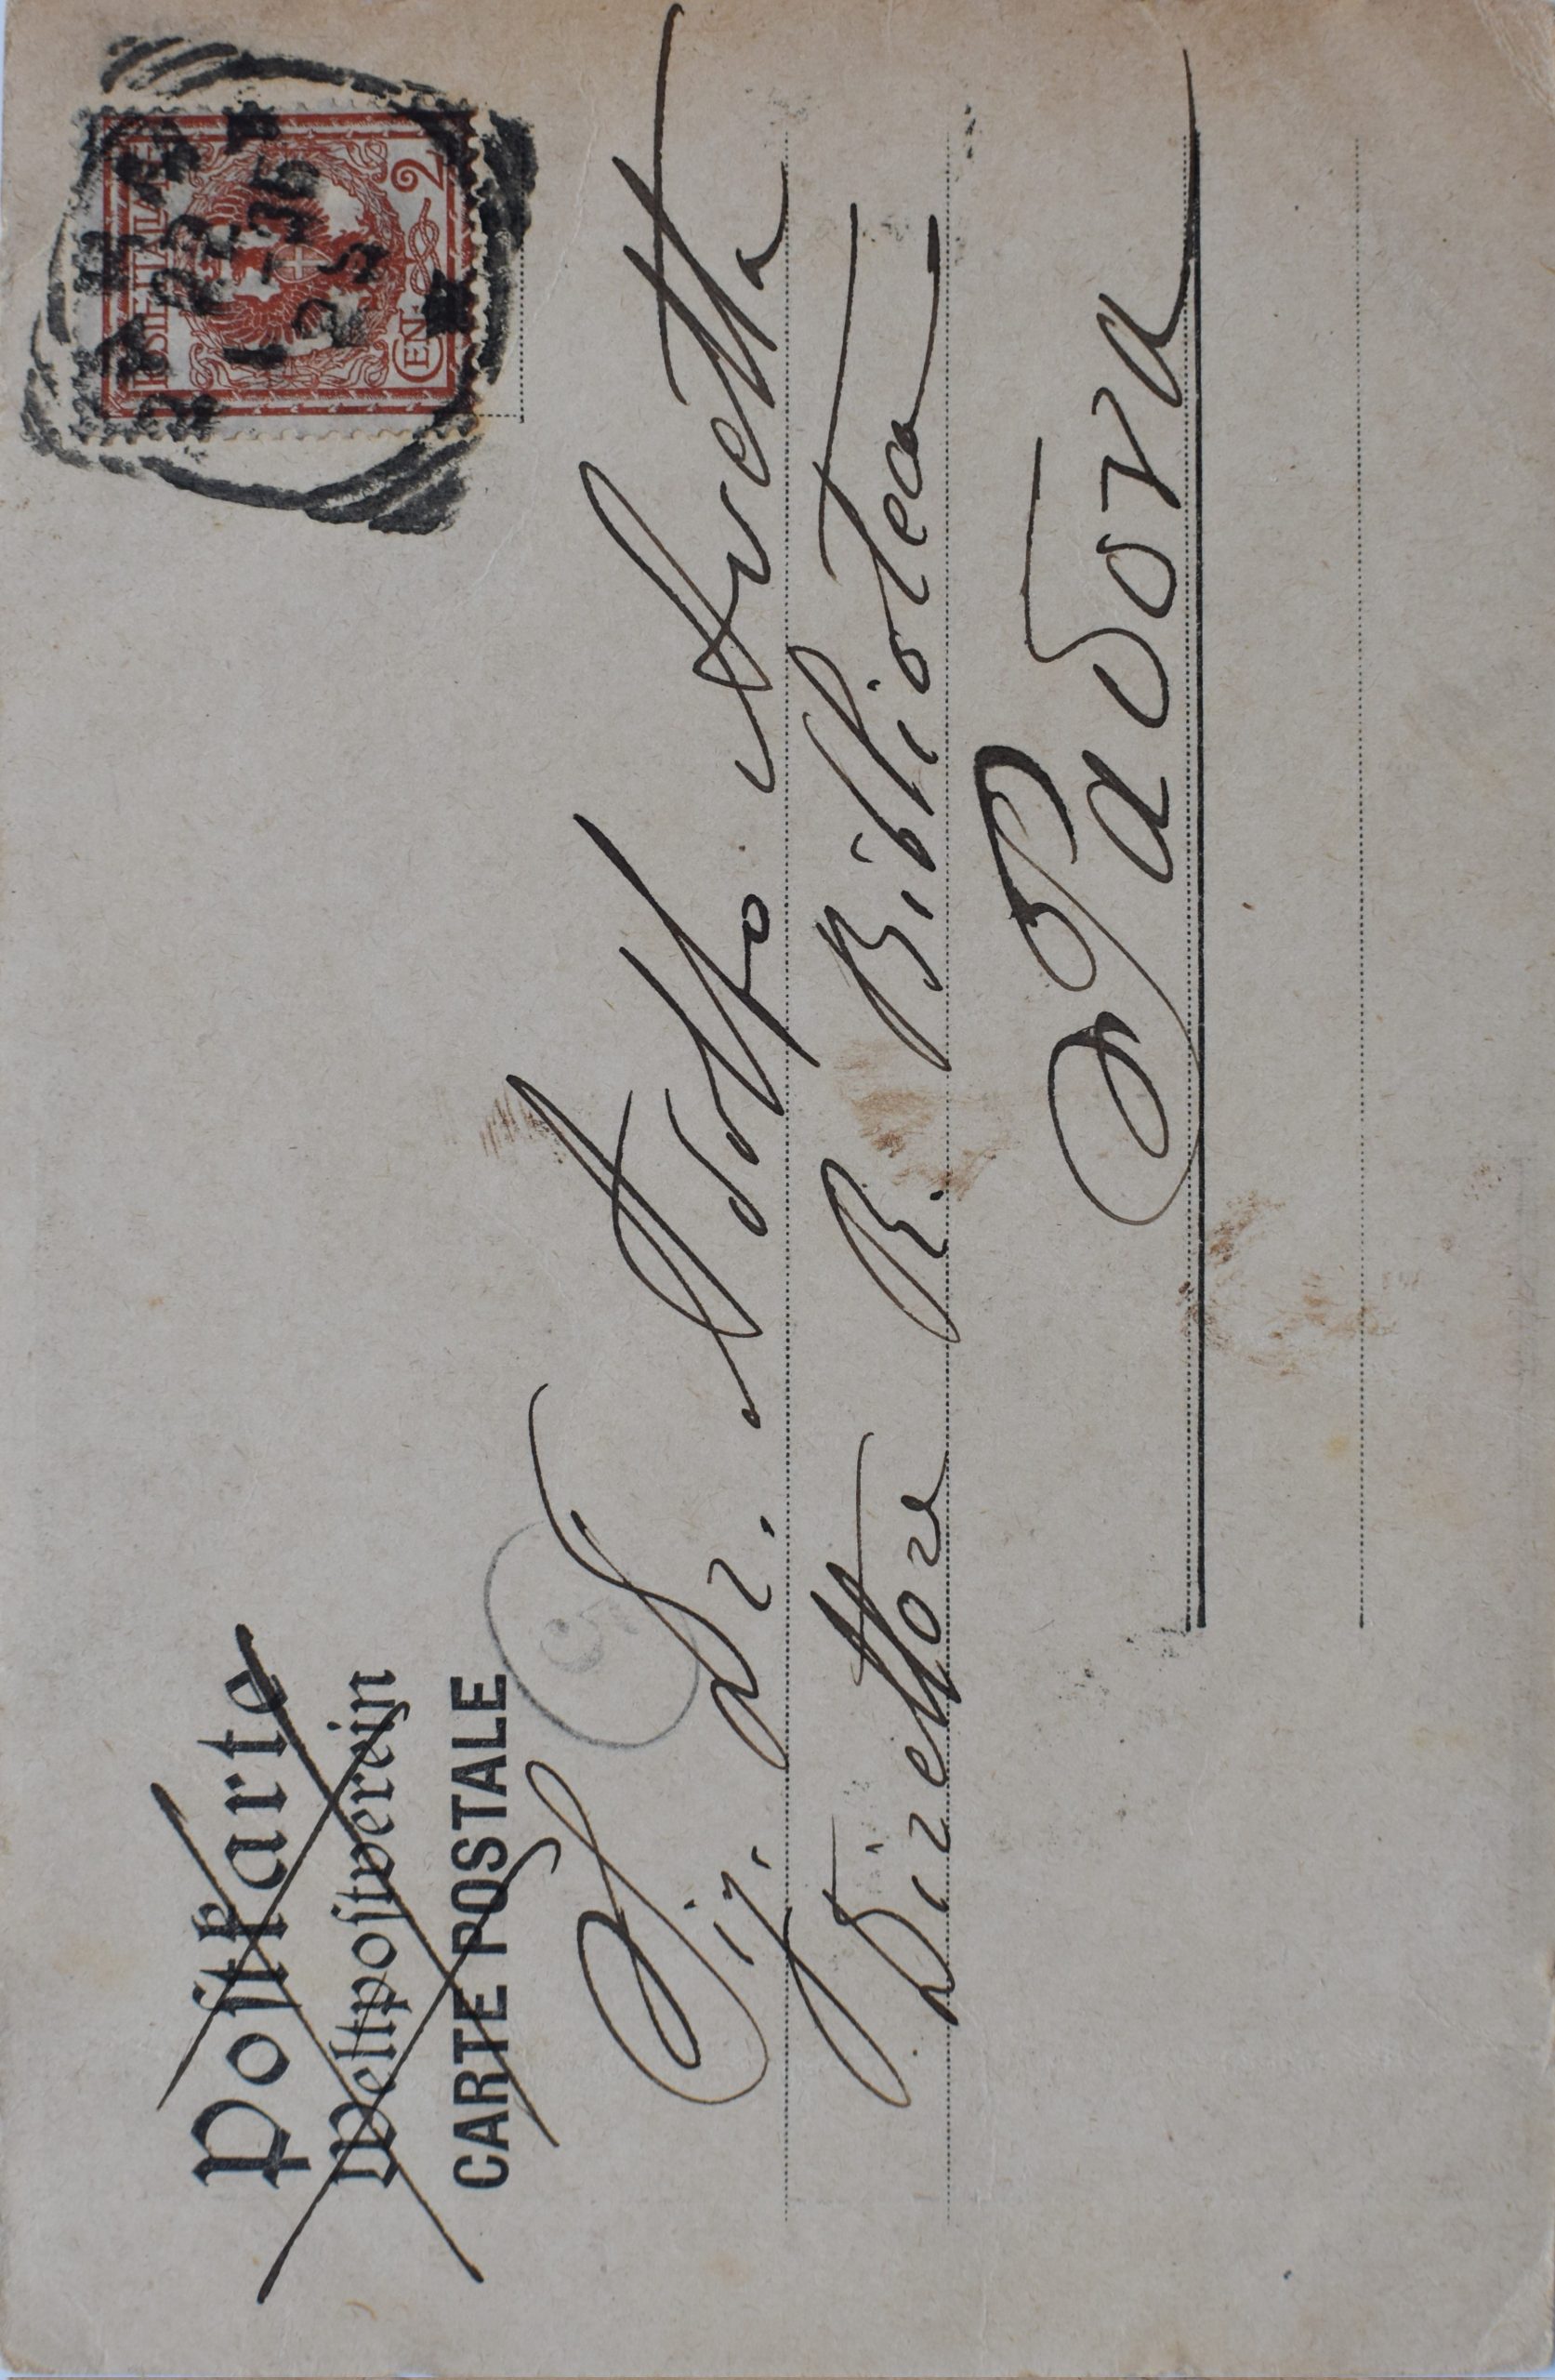 Postkarte
Weltpostverein
CARTE POSTALE
POSTE ITALIANE
CEN. 2
Sig. Dr. Adolfo Avetta
Direttore R. Biblioteca
Padova